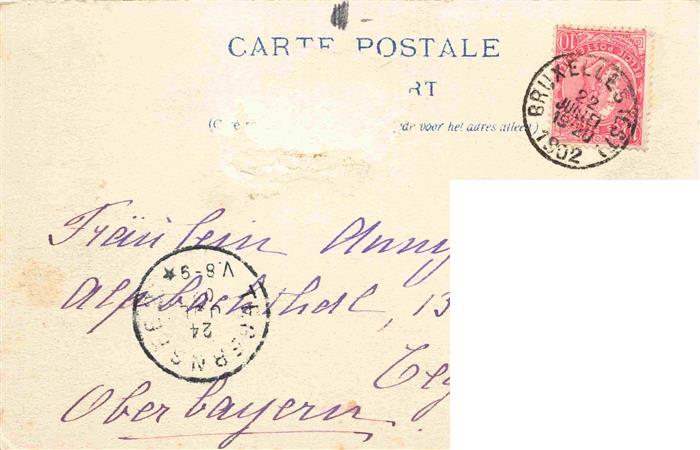 CARTE POSTALE
RT
de voor het adres alleen)
BRUXELLES (EST)
22
JUIL
1902
10
BELGIE POSTE
Fräulein Anny
Alpbachthal, 13
Oberbayern
TEGERNSEE
24
JUL
V.8-9 ★